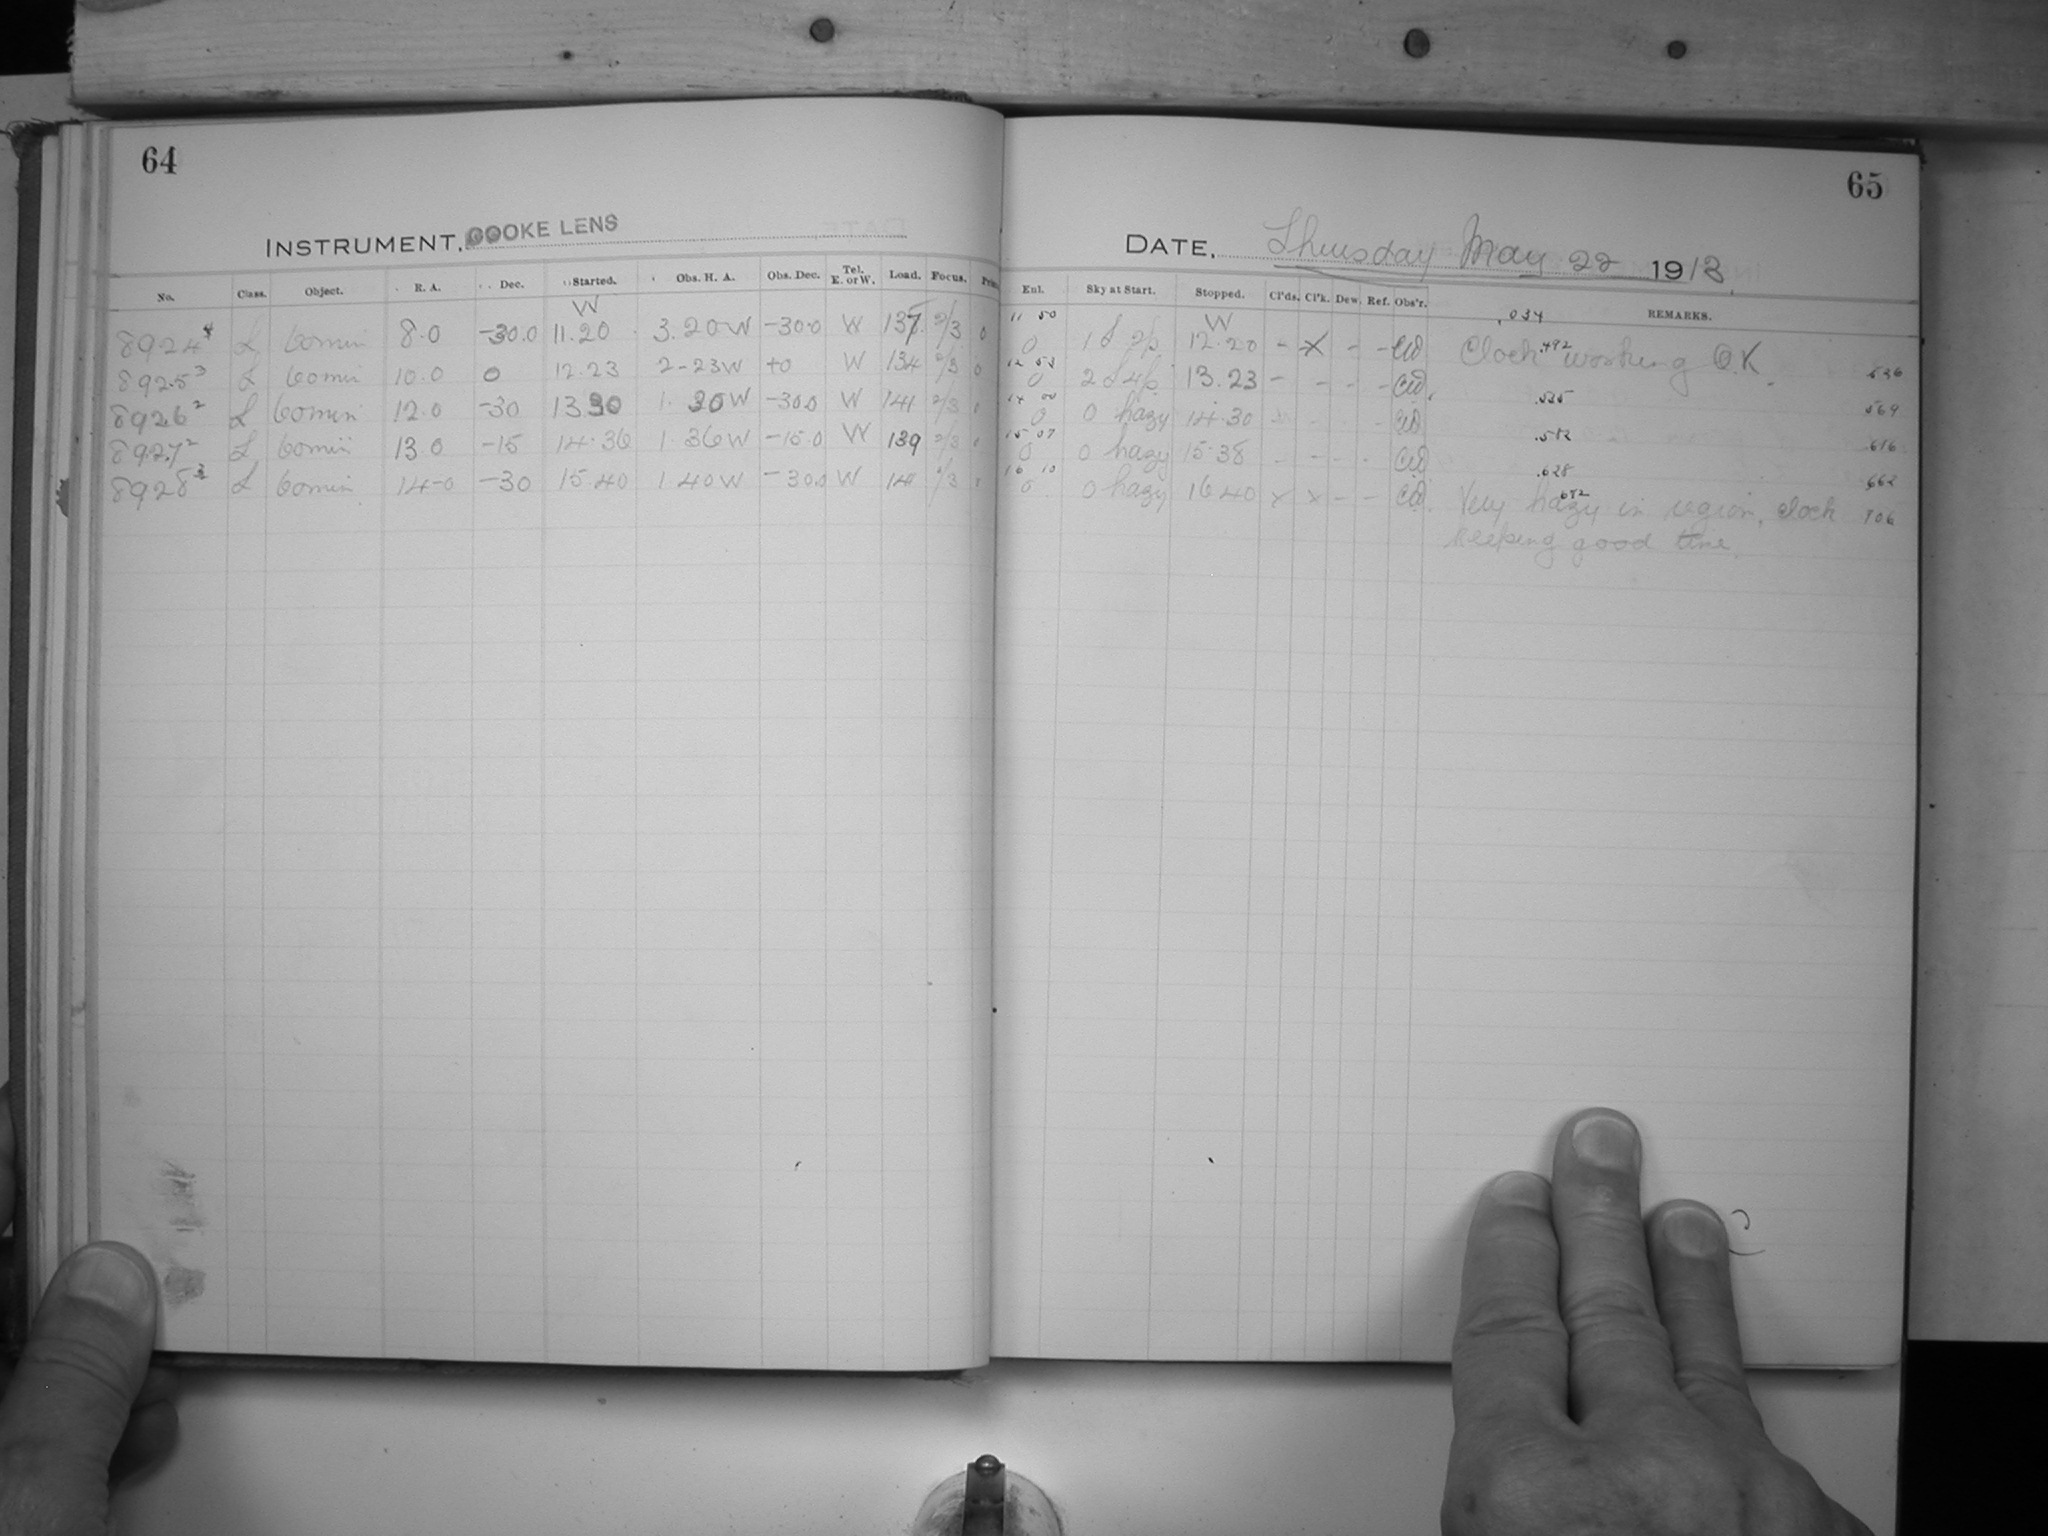 64
INSTRUMENT, COOKE LENS
No. Class. Object. R. A. Dec. Started. Obs. H. A. Obs. Dec. Tel. E. or W. Load. Focus.
W
8924 4 L 60 min 8.0 -30.0 11.20 3.20 W -30.0 W 2/3 0
8925 3 L 60 min 10.0 0 12.23 2-23 W +0 W 134 2/3 0
8926 2 L 60 min 12.0 -30 13.30 1.30 W -30.0 W 141 2/3
8927 2 L 60 min 13.0 -15 14.36 1.36 W -15.0 W 139 2/3
8928 L 60 min 14-0 -30 15.40 1.40 W -30.0 W 2/3
65
DATE, Thursday May 22 1913
Eul. Sky at Start. Stopped. Cl'ds. Cl'k. Dew. Ref. Obs'r. REMARKS.
11 50 W .034
0 12.20 - X - - Clock .492 working O.K. 536
12 53
0 13.23 - - - - .535 569
14 00
0 0 hazy 14.30 - - .582 616
15 07
0 0 hazy 15.38 - - - - .628 662
16 10
0 0 hazy 16.40 X X - - Very hazy in region, clock 706
keeping good time.